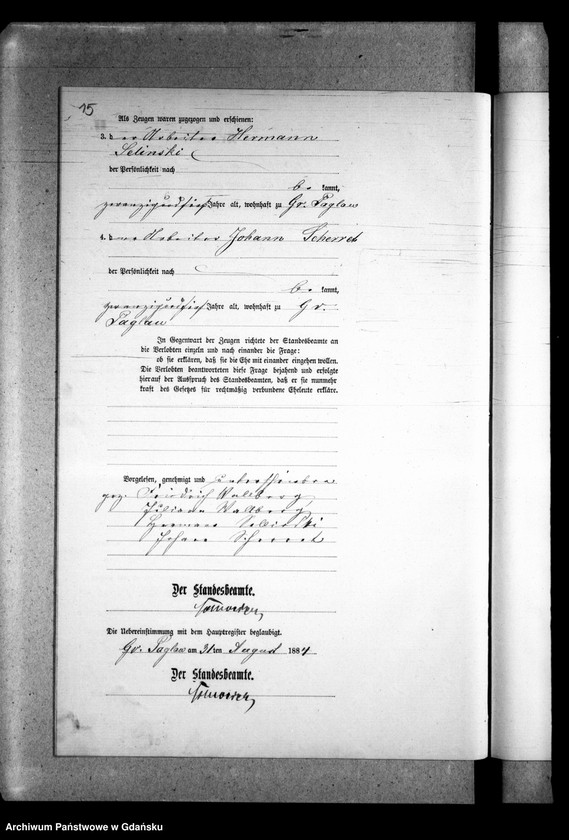 15
Als Zeugen waren zugezogen und erschienen:
3. der Arbeiter Hermann
Selinski
der Persönlichkeit nach
be kannt,
Jahre alt, wohnhaft zu Gr. Paglau
4. der Arbeiter Johann Scherret
der Persönlichkeit nach
be kannt,
Jahre alt, wohnhaft zu Gr.
Paglau
In Gegenwart der Zeugen richtete der Standesbeamte an
die Verlobten einzeln und nach einander die Frage:
ob sie erklären, daß sie die Ehe mit einander eingehen wollen.
Die Verlobten beantworteten diese Frage bejahend und erfolgte
hierauf der Ausspruch des Standesbeamten, daß er sie nunmehr
kraft des Gesetzes für rechtmäßig verbundene Eheleute erkläre.
Vorgelesen, genehmigt und unterschrieben
gez. Friedrich
Juliane
Hermann Selinski
Johann Scherret
Der Standesbeamte.
Die Uebereinstimmung mit dem Hauptregister beglaubigt.
Gr. Paglau am 31ten August 1884
Der Standesbeamte.
Archiwum Państwowe w Gdańsku